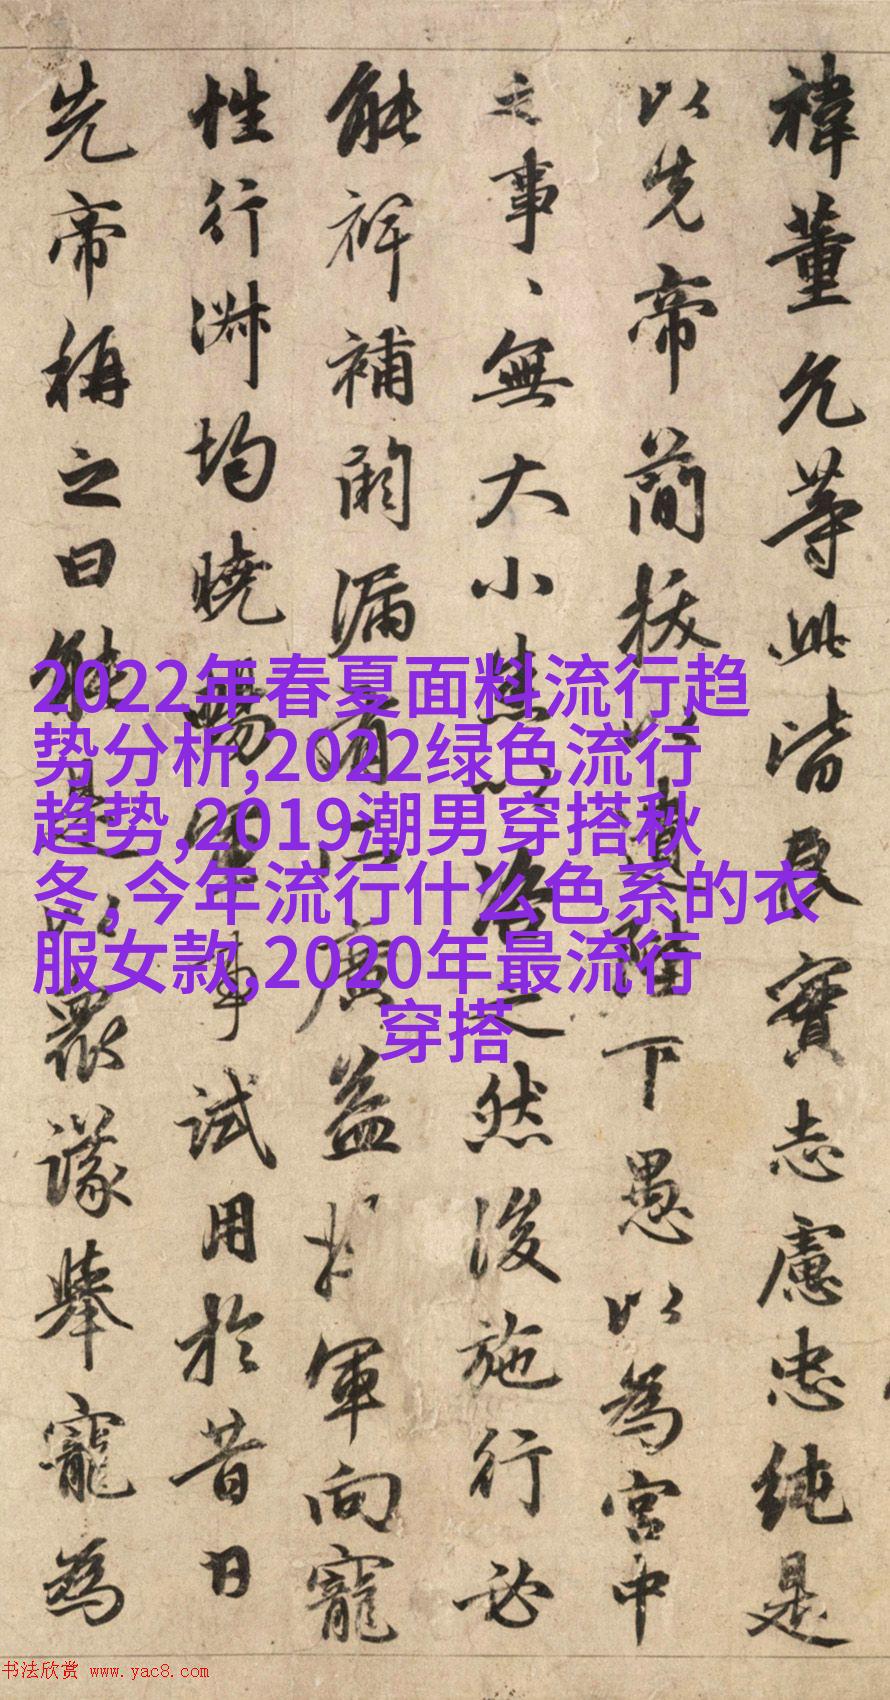 禕董允等此皆良實志慮忠純是
以先帝簡拔以遺陛下愚以為宮中
之事、無大小悉以咨之然後施行必
能裨補闕漏有所廣益將軍向寵
性行淑均曉暢軍事試用於昔日
先帝稱之曰能是以眾議舉寵為
2022年春夏面料流行趋
势分析,2022绿色流行
趋势,2019潮男穿搭秋
冬,今年流行什么色系的衣
服女款,2020年最流行
穿搭
书法欣赏 www.yac8.com